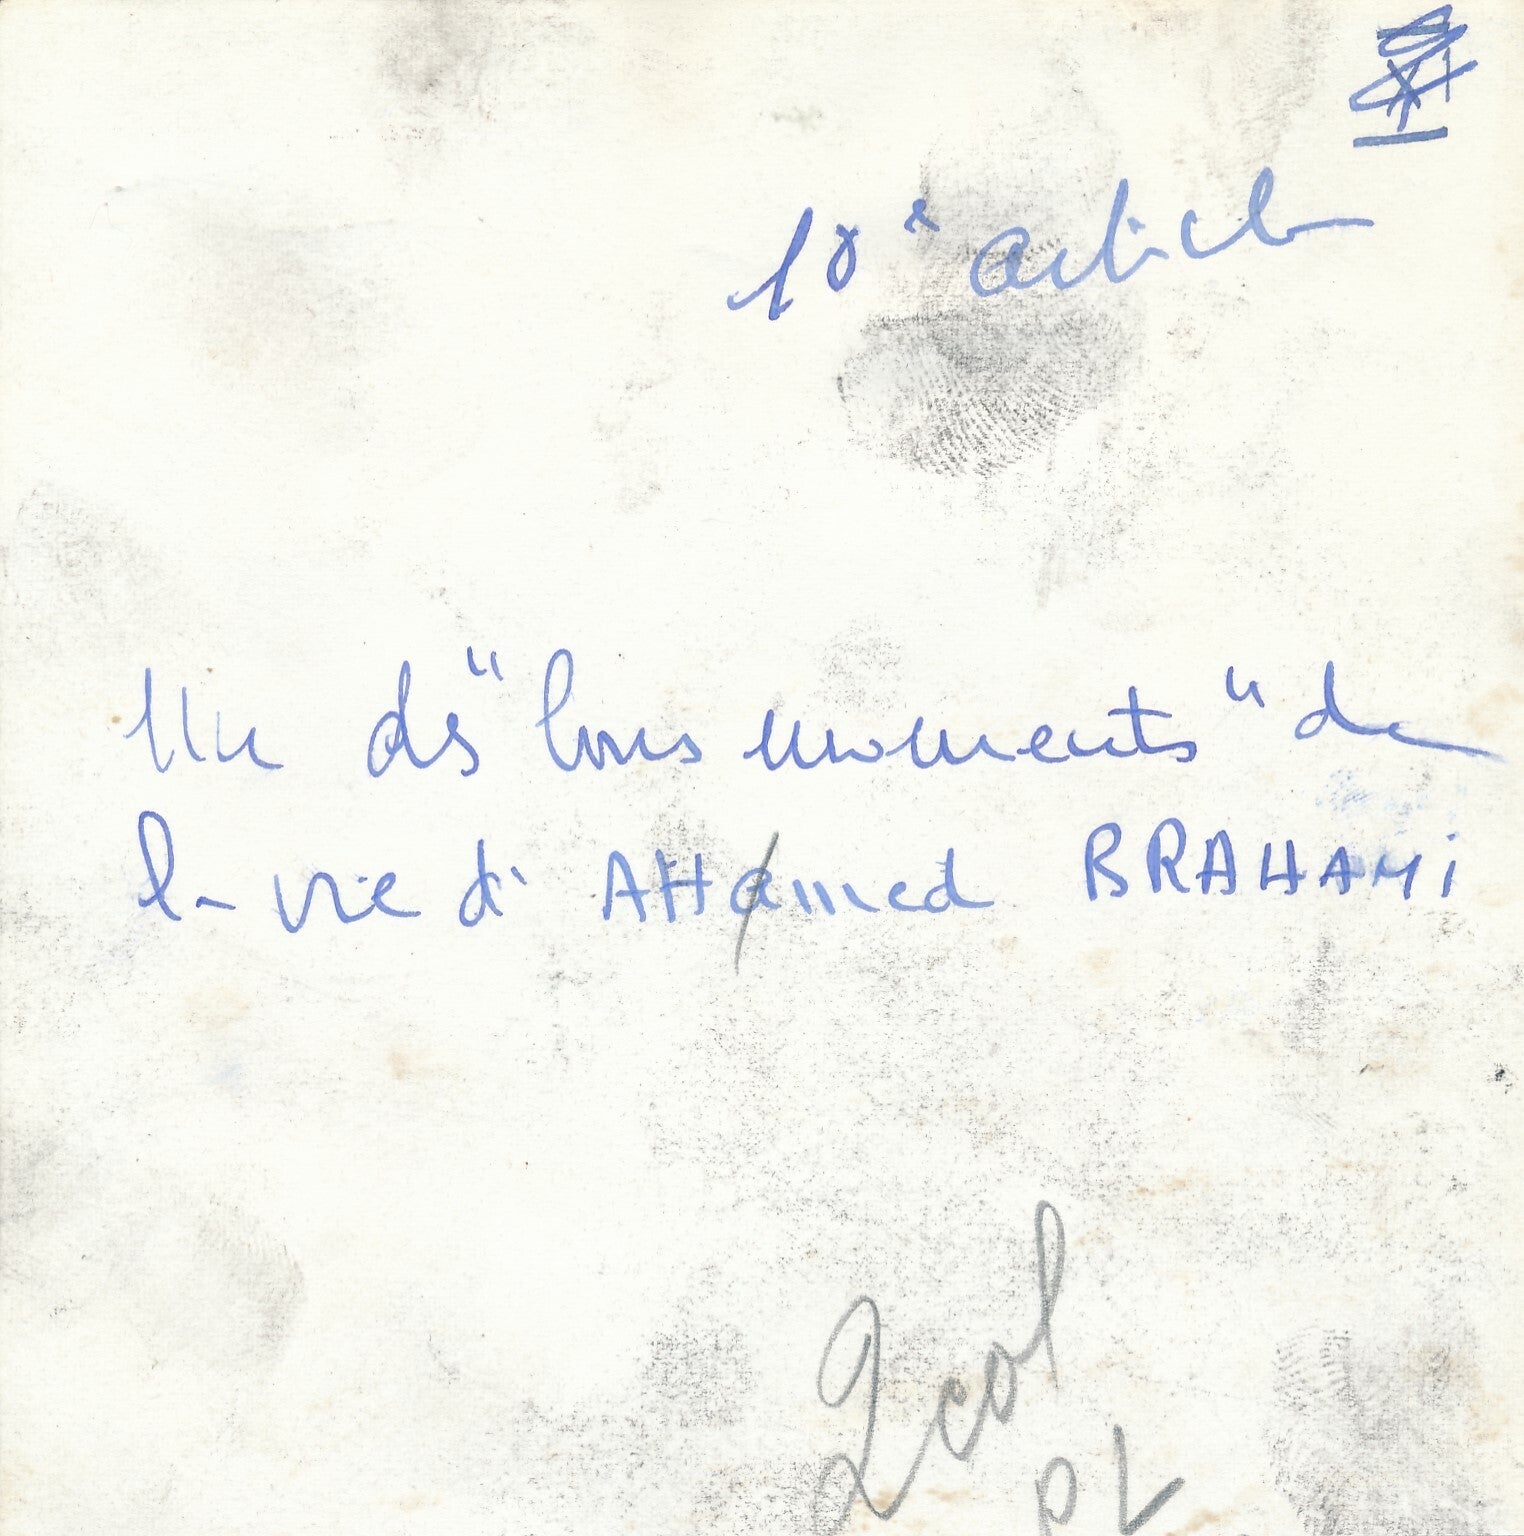 10e article
Un des "bons moments" de
la vie d'AHamed BRAHAMi
2 col
PL